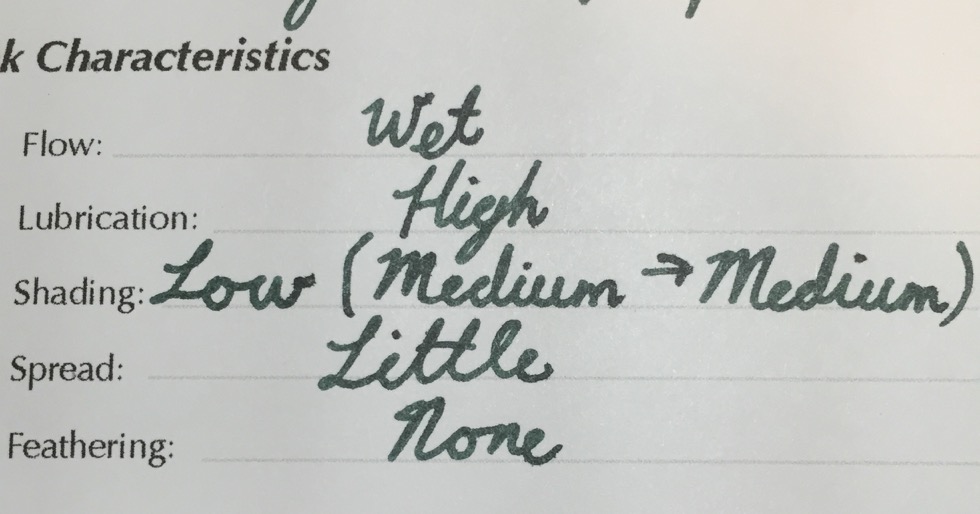 k Characteristics
Flow: Wet
Lubrication: High
Shading: Low (Medium → Medium)
Spread: Little
Feathering: None